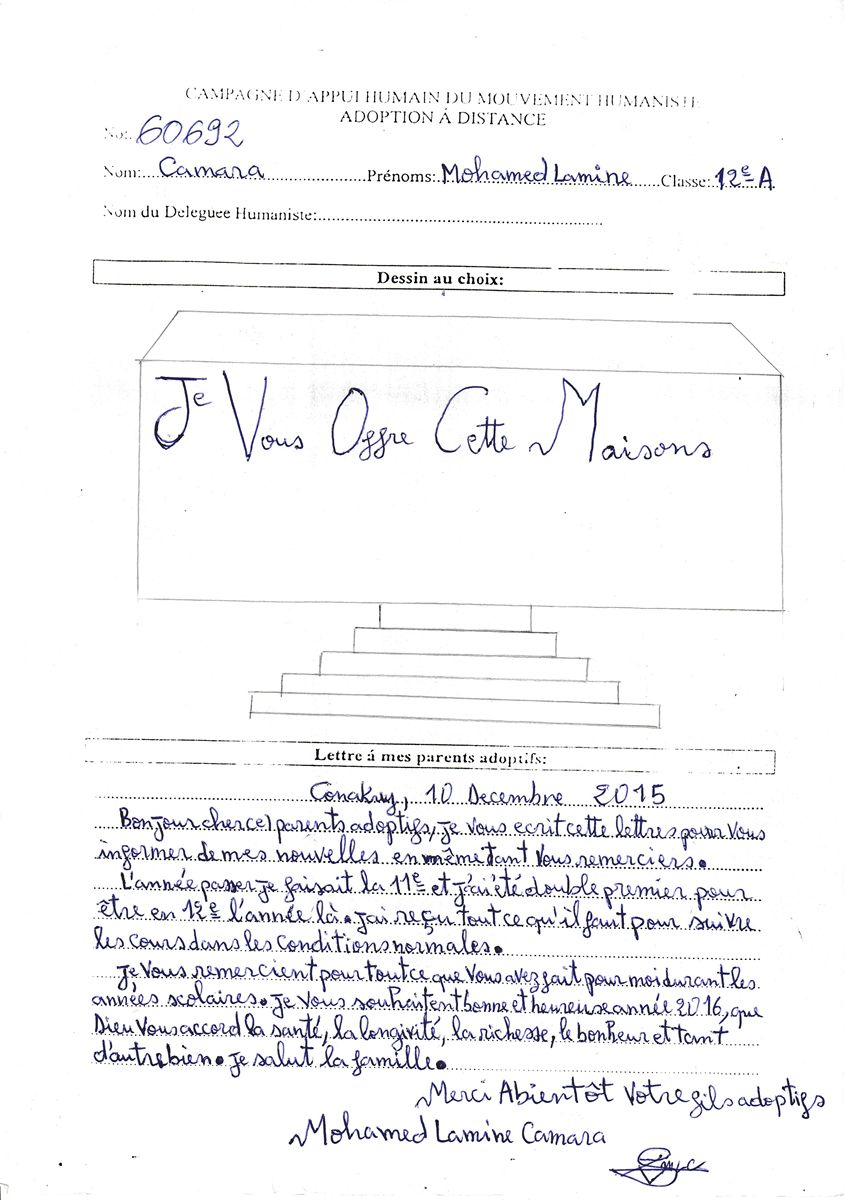 CAMPAGNE D'APPUI HUMAIN DU MOUVEMENT HUMANISTE
ADOPTION Á DISTANCE
No:. 60692
Nom:... Camara ........ Prénoms: Mohamed Lamine ..... Classe: 12e A
Nom du Deleguee Humaniste:..................
Dessin au choix:
Je Vous Offre Cette Maisons
Lettre á mes parents adoptifs:
Conakry, 10 Decembre 2015
Bonjour cher(e) parents adoptifs, je vous ecrit cette lettres pour Vous
informer de mes nouvelles en même tant Vous remerciers.
L'année passer je faisait la 11e et j'ai été double premier pour
être en 12e l'année là. j'ai reçu tout ce qu'il faut pour suivre
les cours dans les conditions normales.
Je Vous remercient pour tout ce que Vous avez fait pour moi durant les
années scolaires. Je Vous souhaitent bonne et heureuse année 2016, que
Dieu Vous accord la santé, la longivité, la richesse, le bonheur et tant
d'autre bien. Je salut la famille.
Merci Abientôt Votre fils adoptifs
Mohamed Lamine Camara